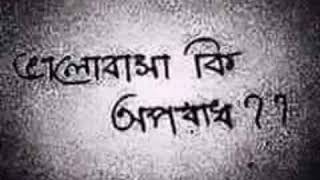 ভালোবাসা কি
অপরাধ ??